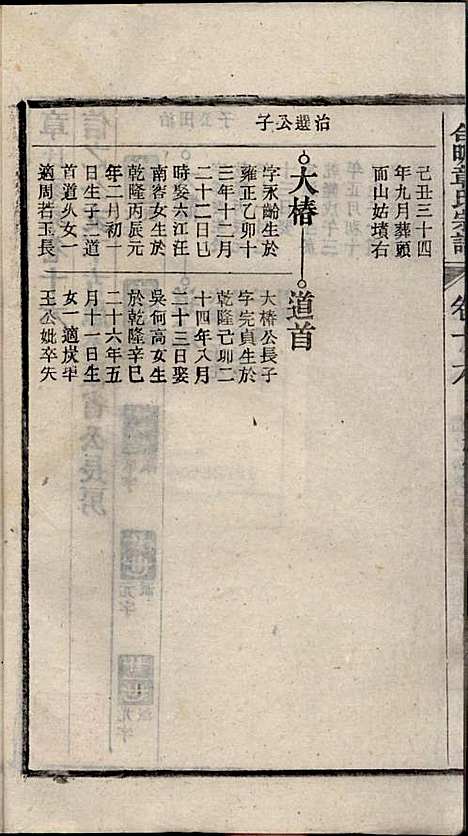 治選公子
己丑三十四
年九月葬頭
面山姑墳右
大椿
字永齡生於
雍正乙卯十
三年十二月
二十二日巳
時娶六江汪
南客女生於
乾隆丙辰元
年二月初一
日生子一道
首道火女一
適周若玉長
道首
大椿公長子
字完貞生於
乾隆己卯二
十四年八月
二十三日娶
吳何高女生
於乾隆辛巳
二十六年五
月十一日生
女一適
王公妣卒失